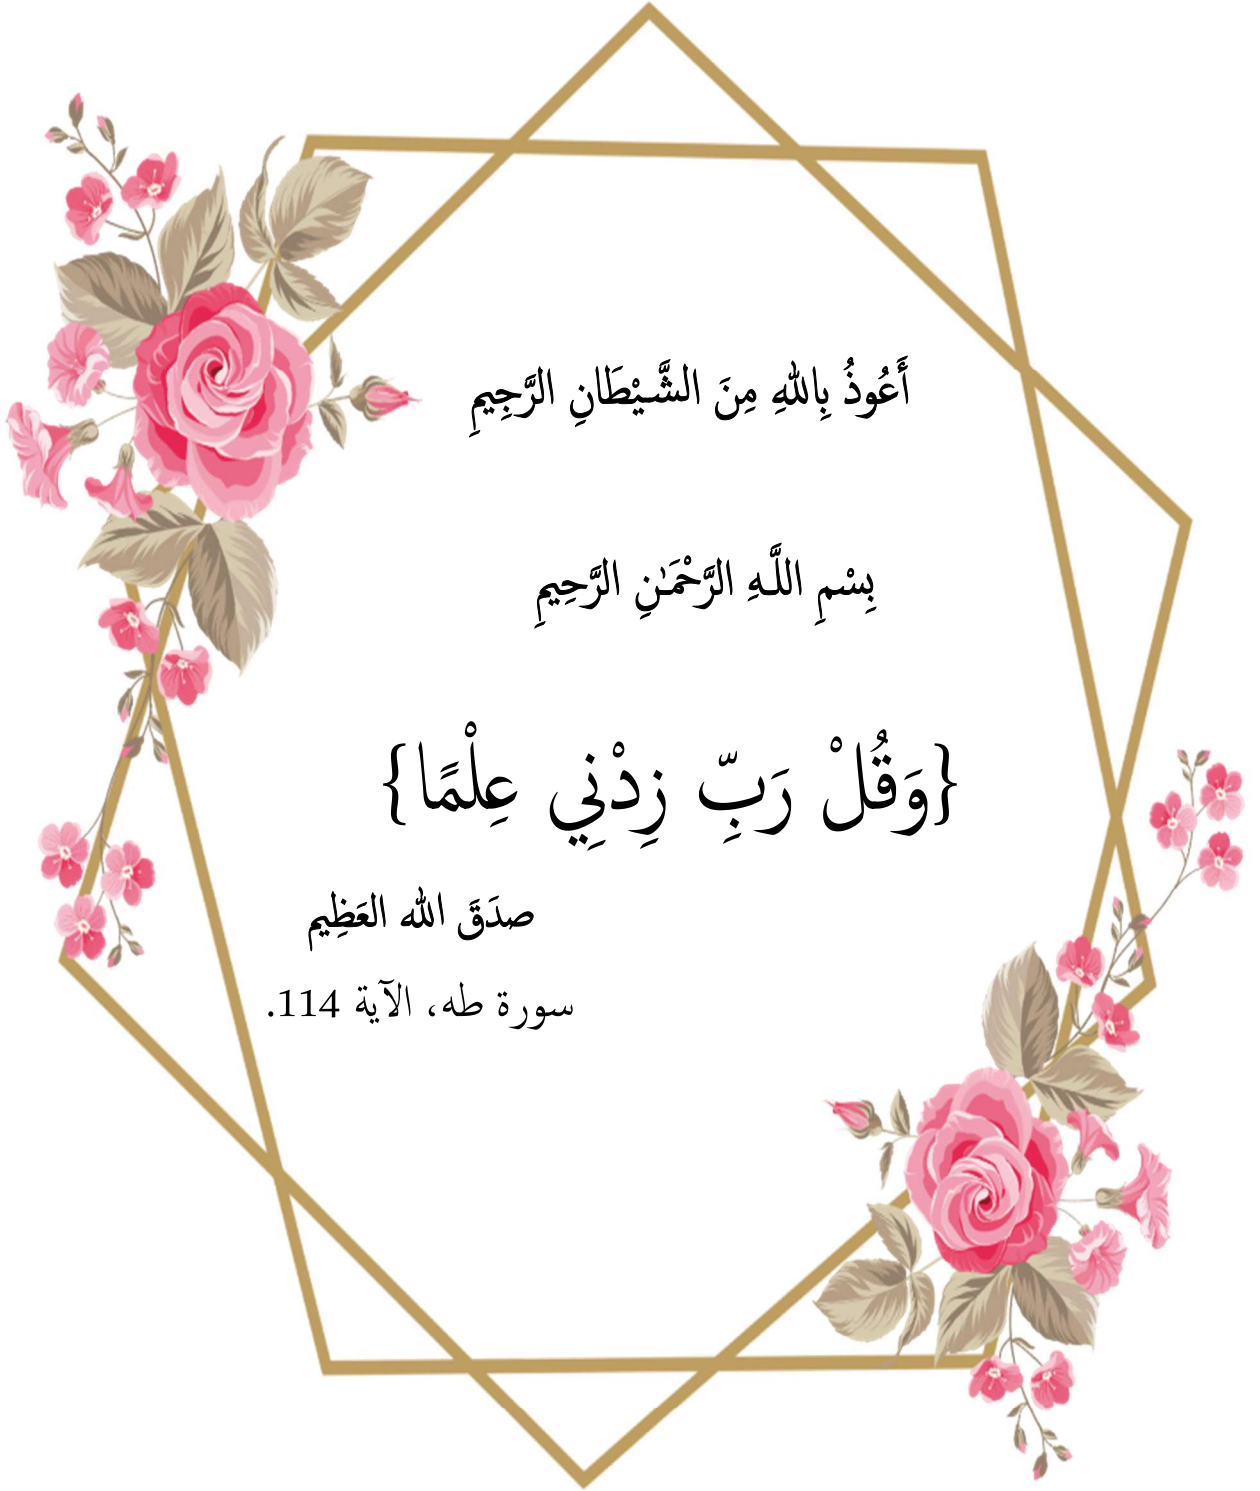 أَعُوذُ بِاللهِ مِنَ الشَّيْطَانِ الرَّجِيمِ
بِسْمِ اللَّـهِ الرَّحْمَـٰنِ الرَّحِيمِ
{وَقُلْ رَبِّ زِدْنِي عِلْمًا}
صدَقَ الله العَظِيم
سورة طه، الآية 114.